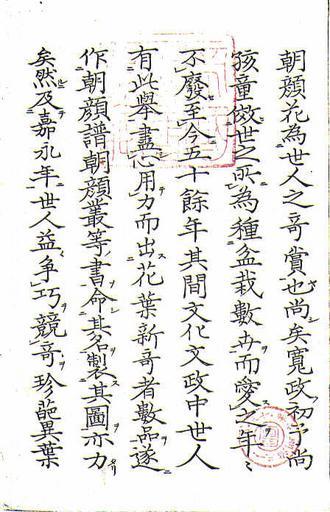 朝顔花為世人之奇賞也尚矣寛政初予尚
孩童傚世之所為種盆栽數卉而愛之年々
不廢至今五十餘年其間文化文政中世人
有此舉盡心用力而出花葉新奇者數品遂
作朝顔譜朝顔叢等書命其名製其圖亦力
矣然及嘉永年世人益争巧競奇珍葩異葉